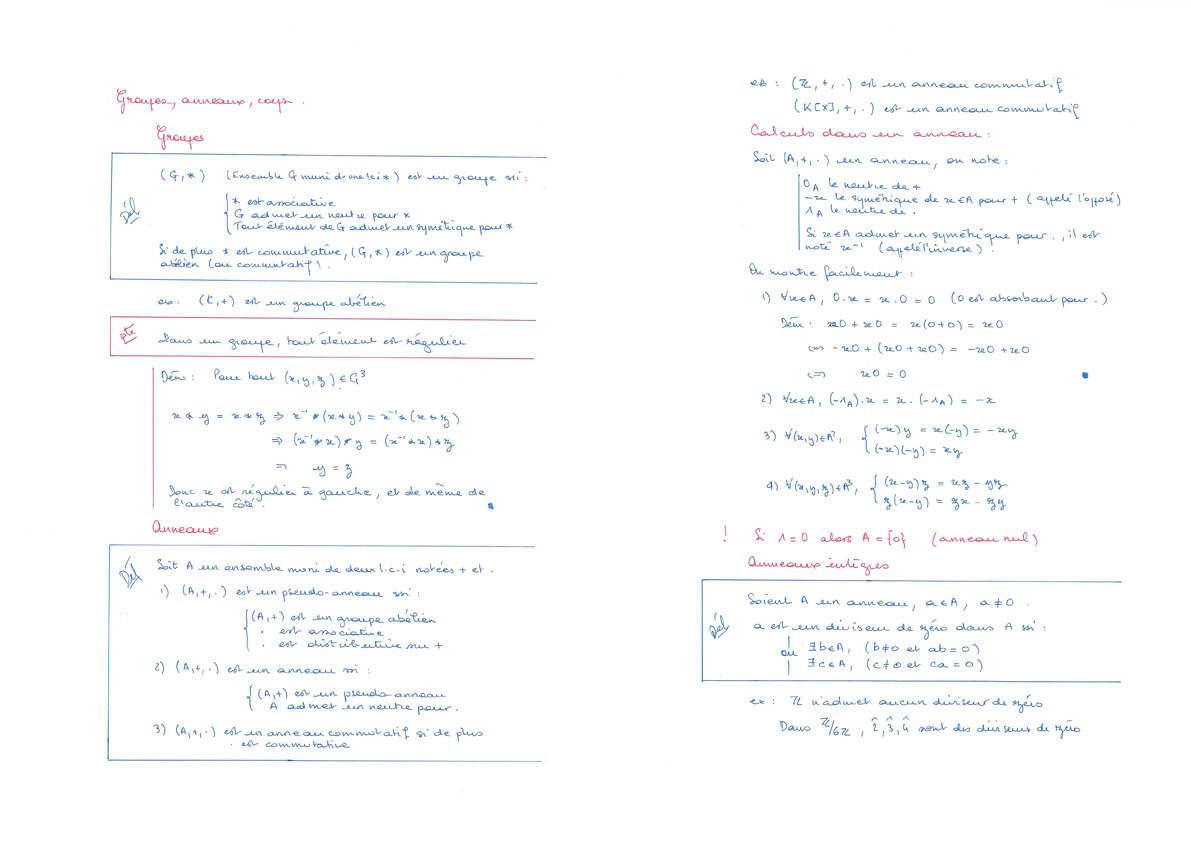 Groupes, anneaux, corps.
Groupes
Déf
(G,*) (Ensemble G muni d'une lci *) est un groupe ssi :
* est associative
G admet un neutre pour *
Tout élément de G admet un symétrique pour *
Si de plus * est commutative, (G,*) est un groupe
abélien (ou commutatif).
ex : (ℂ,+) est un groupe abélien
pté
Dans un groupe, tout élément est régulier
Dém : Pour tout (x,y,z) ∈ G³
x * y = x * z ⇒ x⁻¹ * (x * y) = x⁻¹ * (x * z)
⇒ (x⁻¹ * x) * y = (x⁻¹ * x) * z
⇒ y = z
Donc x est régulier à gauche, et de même de
l'autre côté.
Anneaux
Déf
Soit A un ensemble muni de deux l.c.i notées + et .
1) (A,+,.) est un pseudo-anneau ssi :
(A,+) est un groupe abélien
. est associative
. est distributive sur +
2) (A,+,.) est un anneau ssi :
(A,+) est un pseudo-anneau
A admet un neutre pour .
3) (A,+,.) est un anneau commutatif si de plus
. est commutative
ex : (ℤ,+,.) est un anneau commutatif
(K[X],+,.) est un anneau commutatif
Calculs dans un anneau :
Soit (A,+,.) un anneau, on note :
0_A le neutre de +
-x le symétrique de x∈A pour + (appelé l'opposé)
1_A le neutre de .
Si x∈A admet un symétrique pour ., il est
noté x⁻¹ (appelé l'inverse).
On montre facilement :
1) ∀x∈A, 0.x = x.0 = 0 (0 est absorbant pour .)
Dém : x0 + x0 = x(0+0) = x0
⇔ -x0 + (x0 + x0) = -x0 + x0
⇔ x0 = 0
2) ∀x∈A, (-1_A).x = x.(-1_A) = -x
3) ∀(x,y)∈A², (-x)y = x(-y) = -xy
(-x)(-y) = xy
4) ∀(x,y,z)∈A³, (x-y)z = xz - yz
z(x-y) = zx - zy
! Si 1=0 alors A={0} (anneau nul)
Anneaux intègres
Déf
Soient A un anneau, a∈A, a≠0.
a est un diviseur de zéro dans A ssi :
∃b∈A, (b≠0 et ab=0)
ou
∃c∈A, (c≠0 et ca=0)
ex : ℤ n'admet aucun diviseur de zéro
Dans ℤ/6ℤ, 2̂, 3̂, 4̂ sont des diviseurs de zéro